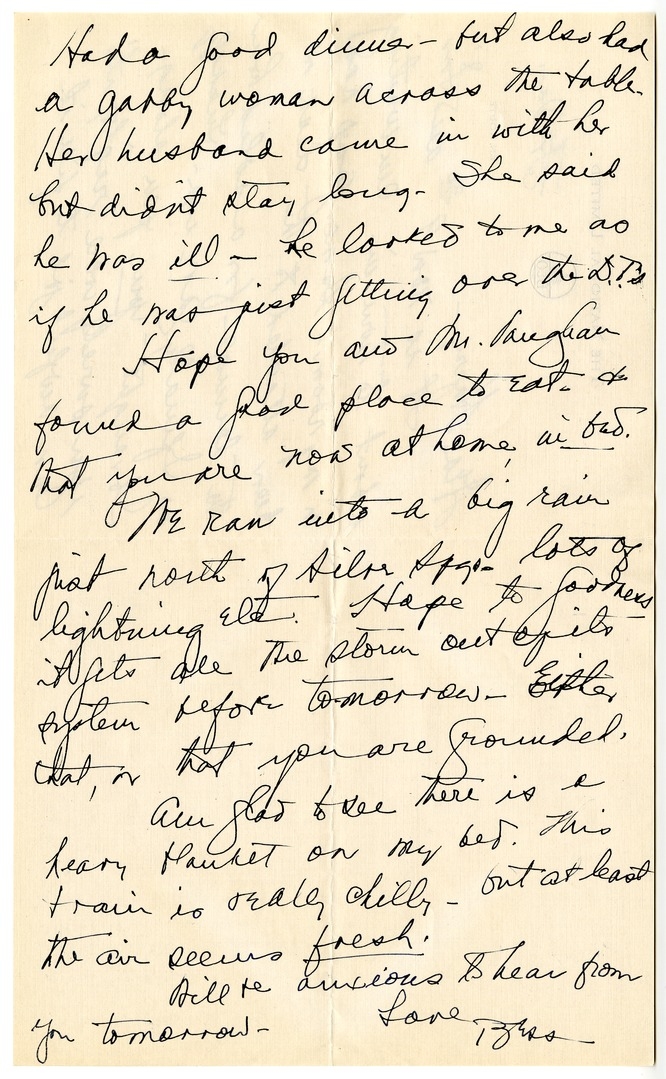 Had a good dinner - but also had
a gabby woman across the table.
Her husband came in with her
but didn't stay long. She said
he was ill - he looked to me as
if he was just getting over the D.T.'s
Hope you and Mr. Vaughan
found a good place to eat - &
that you are now at home, in bed.
We ran into a big rain
just north of Silver Spgs - lots of
lightning etc. Hope to goodness
it gets all the storm out of its
system before tomorrow - Either
that, or that you are grounded.
Am glad to see there is a
heavy blanket on my bed. This
train is really chilly - but at least
the air seems fresh.
Will be anxious to hear from
you tomorrow -
Love
Bess